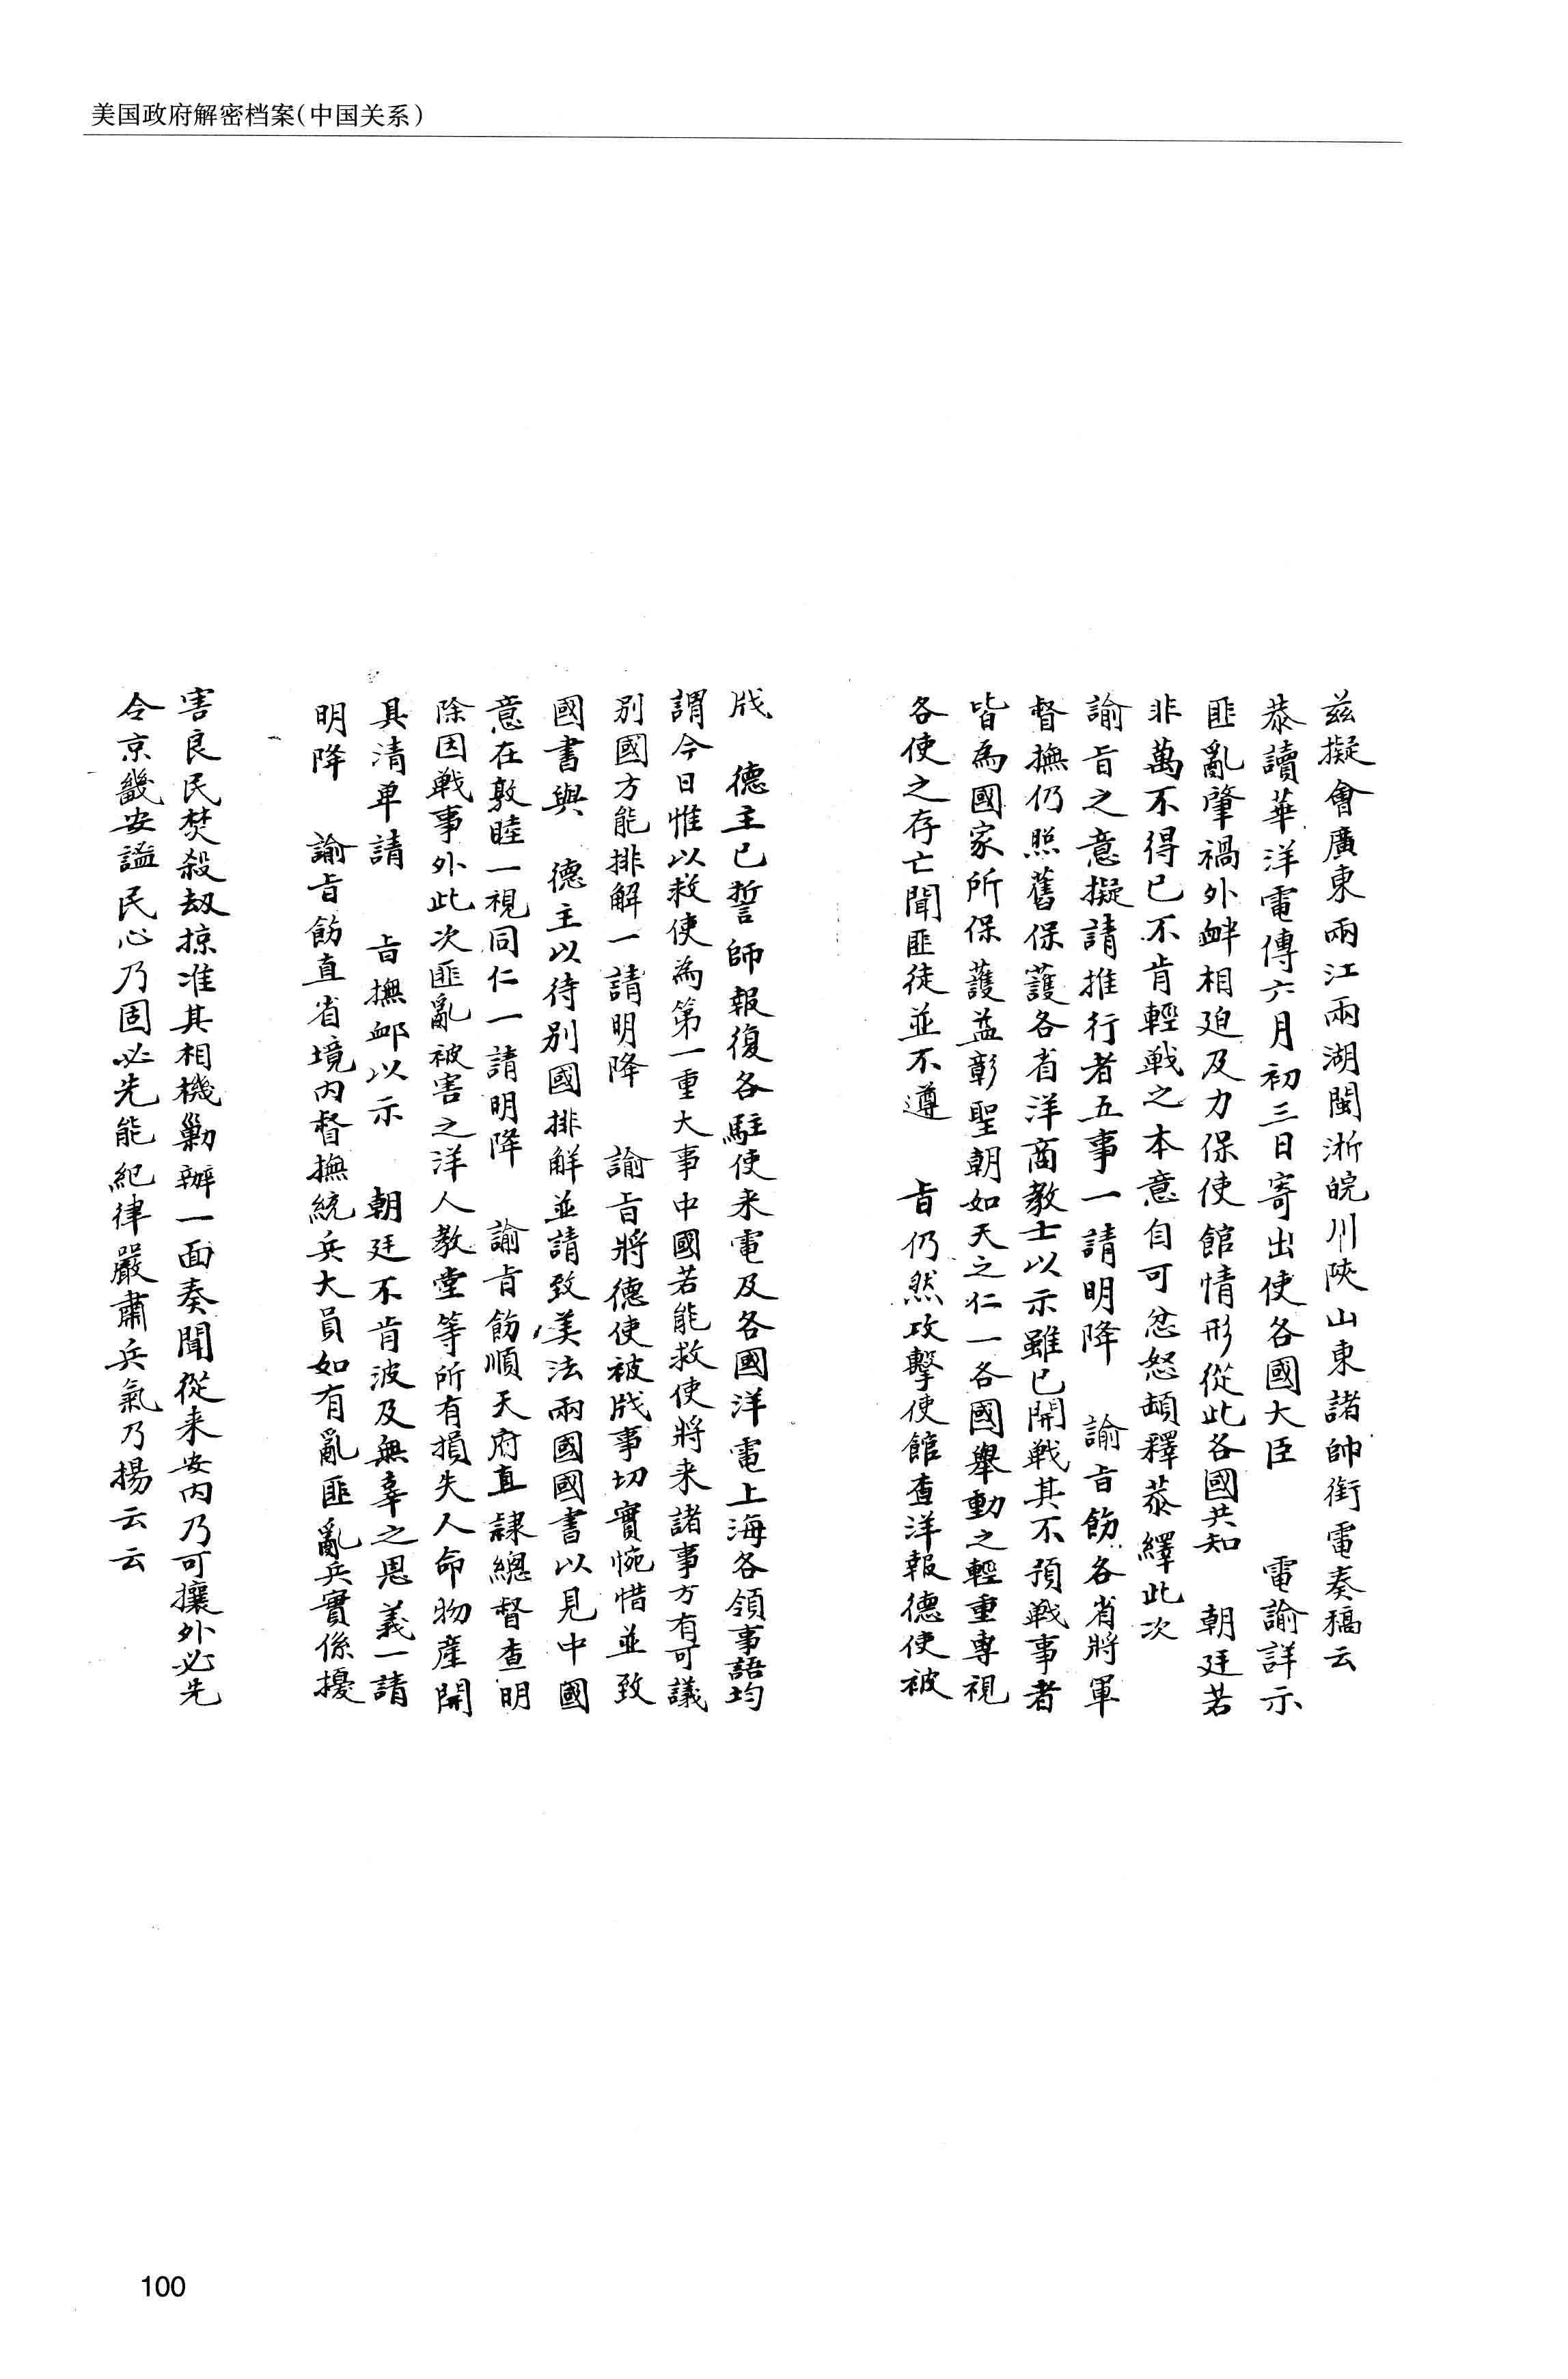 美国政府解密档案(中国关系)
茲擬會廣東兩江兩湖閩浙皖川陝山東諸帥銜電奏稿云
恭讀華洋電傳六月初三日寄出使各國大臣 電諭詳示
匪亂肇禍外衅相迫及力保使館情形從此各國共知 朝廷若
非萬不得已不肯輕戰之本意自可忿怒頓釋恭繹此次
諭旨之意擬請推行者五事一請明降 諭旨飭各省將軍
督撫仍照舊保護各省洋商教士以示雖已開戰其不預戰事者
皆為國家所保護益彰聖朝如天之仁一各國舉動之輕重專視
各使之存亡聞匪徒並不遵 旨仍然攻擊使館查洋報德使被
戕 德主已誓師報復各駐使来電及各國洋電上海各領事語均
謂今日惟以救使為第一重大事中國若能救使將来諸事方有可議
別國方能排解一請明降 諭旨將德使被戕事切實惋惜並致
國書與 德主以待別國排解並請致美法兩國國書以見中國
意在敦睦一視同仁一請明降 諭旨飭順天府直隸總督查明
除因戰事外此次匪亂被害之洋人教堂等所有損失人命物產開
具清单請 旨撫卹以示 朝廷不肯波及無辜之恩義一請
明降 諭旨飭直省境內督撫統兵大員如有亂匪亂兵實係擾
害良民焚殺劫掠准其相機勦辦一面奏聞從来安內乃可攘外必先
令京畿安謐民心乃固必先能紀律嚴肅兵氣乃揚云云
100